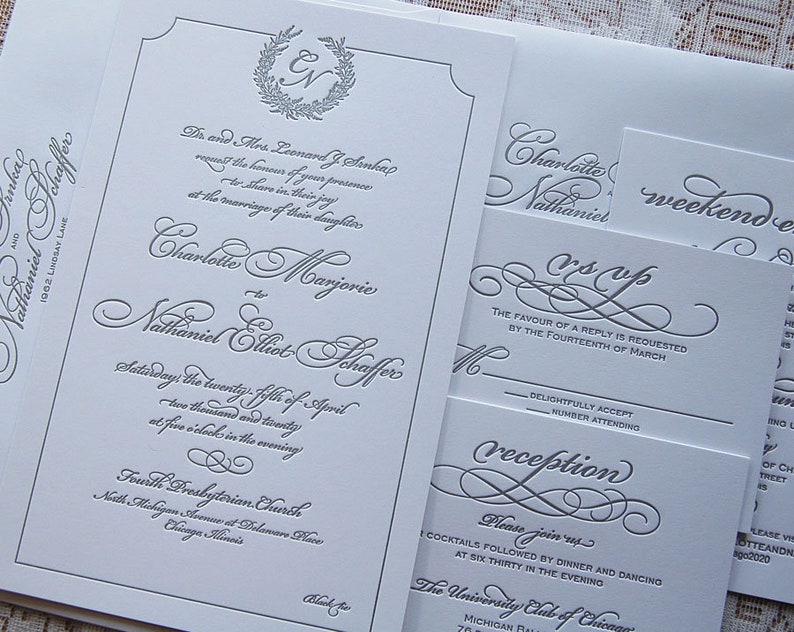 CN
Dr. and Mrs. Leonard J. Srnka
request the honour of your presence
to share in their joy
at the marriage of their daughter
Charlotte Marjorie
to
Nathaniel Elliot Schaffer
Saturday, the twenty-fifth of April
two thousand and twenty
at five o'clock in the evening
Fourth Presbyterian Church
North Michigan Avenue at Delaware Place
Chicago, Illinois
Black tie
Srnka
AND
Nathaniel Schaffer
1962 LINDSAY LANE
Charlotte
Nathaniel
weekend
rsvp
THE FAVOUR OF A REPLY IS REQUESTED
BY THE FOURTEENTH OF MARCH
M
DELIGHTFULLY ACCEPT
NUMBER ATTENDING
reception
Please join us
COCKTAILS FOLLOWED BY DINNER AND DANCING
AT SIX THIRTY IN THE EVENING
The University Club of Chicago
MICHIGAN
76
STREET
PLEASE VISIT